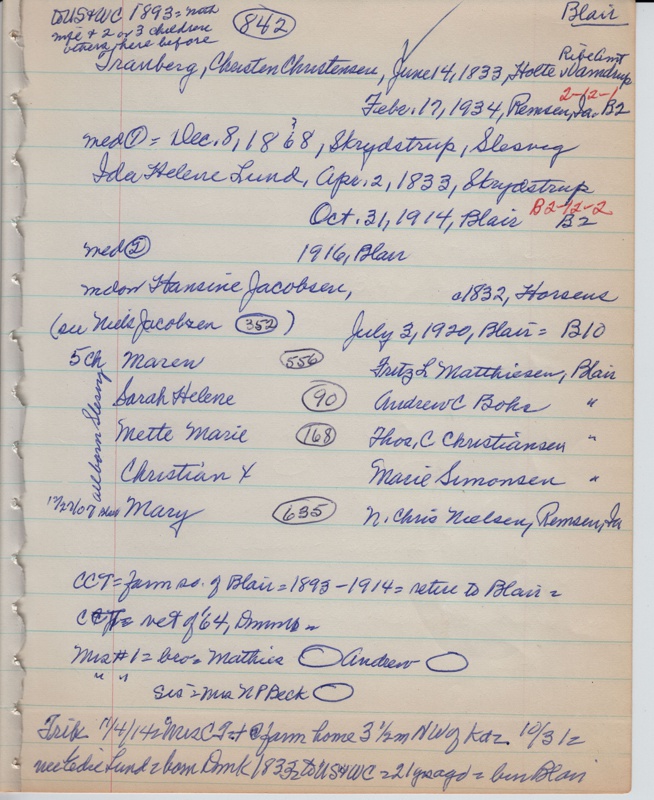 to US & WC 1893 = with
wife & 2 or 3 children
others here before
842
Blair
Tranberg, Chersten Christensen, June 14, 1833, Holte v Vamdrup
Ribe Amt
2-12-1
Febr. 17, 1934, Remsen, Ia. B2
med ① = Dec. 8, 1868, Skrydstrup, Slesvig
?
Ida Helene Lund, Apr. 2, 1833, Skrydstrup
Oct. 31, 1914, Blair B2-12-2
B2
med ② 1916, Blair
Hansine Jacobsen, c1832, Horsens
(see Niels Jacobsen 352) July 3, 1920, Blair = B10
5 ch Maren 556 Fritz L Matthiesen, Blair
all born Slesvig
Sarah Helene 90 Andrew C Bohs "
Mette Marie 168 Thos. C Christiansen "
Christian X Marie Simonsen "
12/27/07 Mary 635 N. Chris Nielsen, Remsen, Ia
CCT = farm so. of Blair = 1893-1914 = retire to Blair =
CCT = vet of '64,
Mrs #1 = bro = Mathies Andrew
" " sis = Mrs N P Beck
Trib 11/4/14 = Mrs C T + @ farm home 3 1/2 m NW of Ka = 10/31 =
nee Lund = born Dmk 1833 = to US & WC = 21 yrs ago = bur Blair